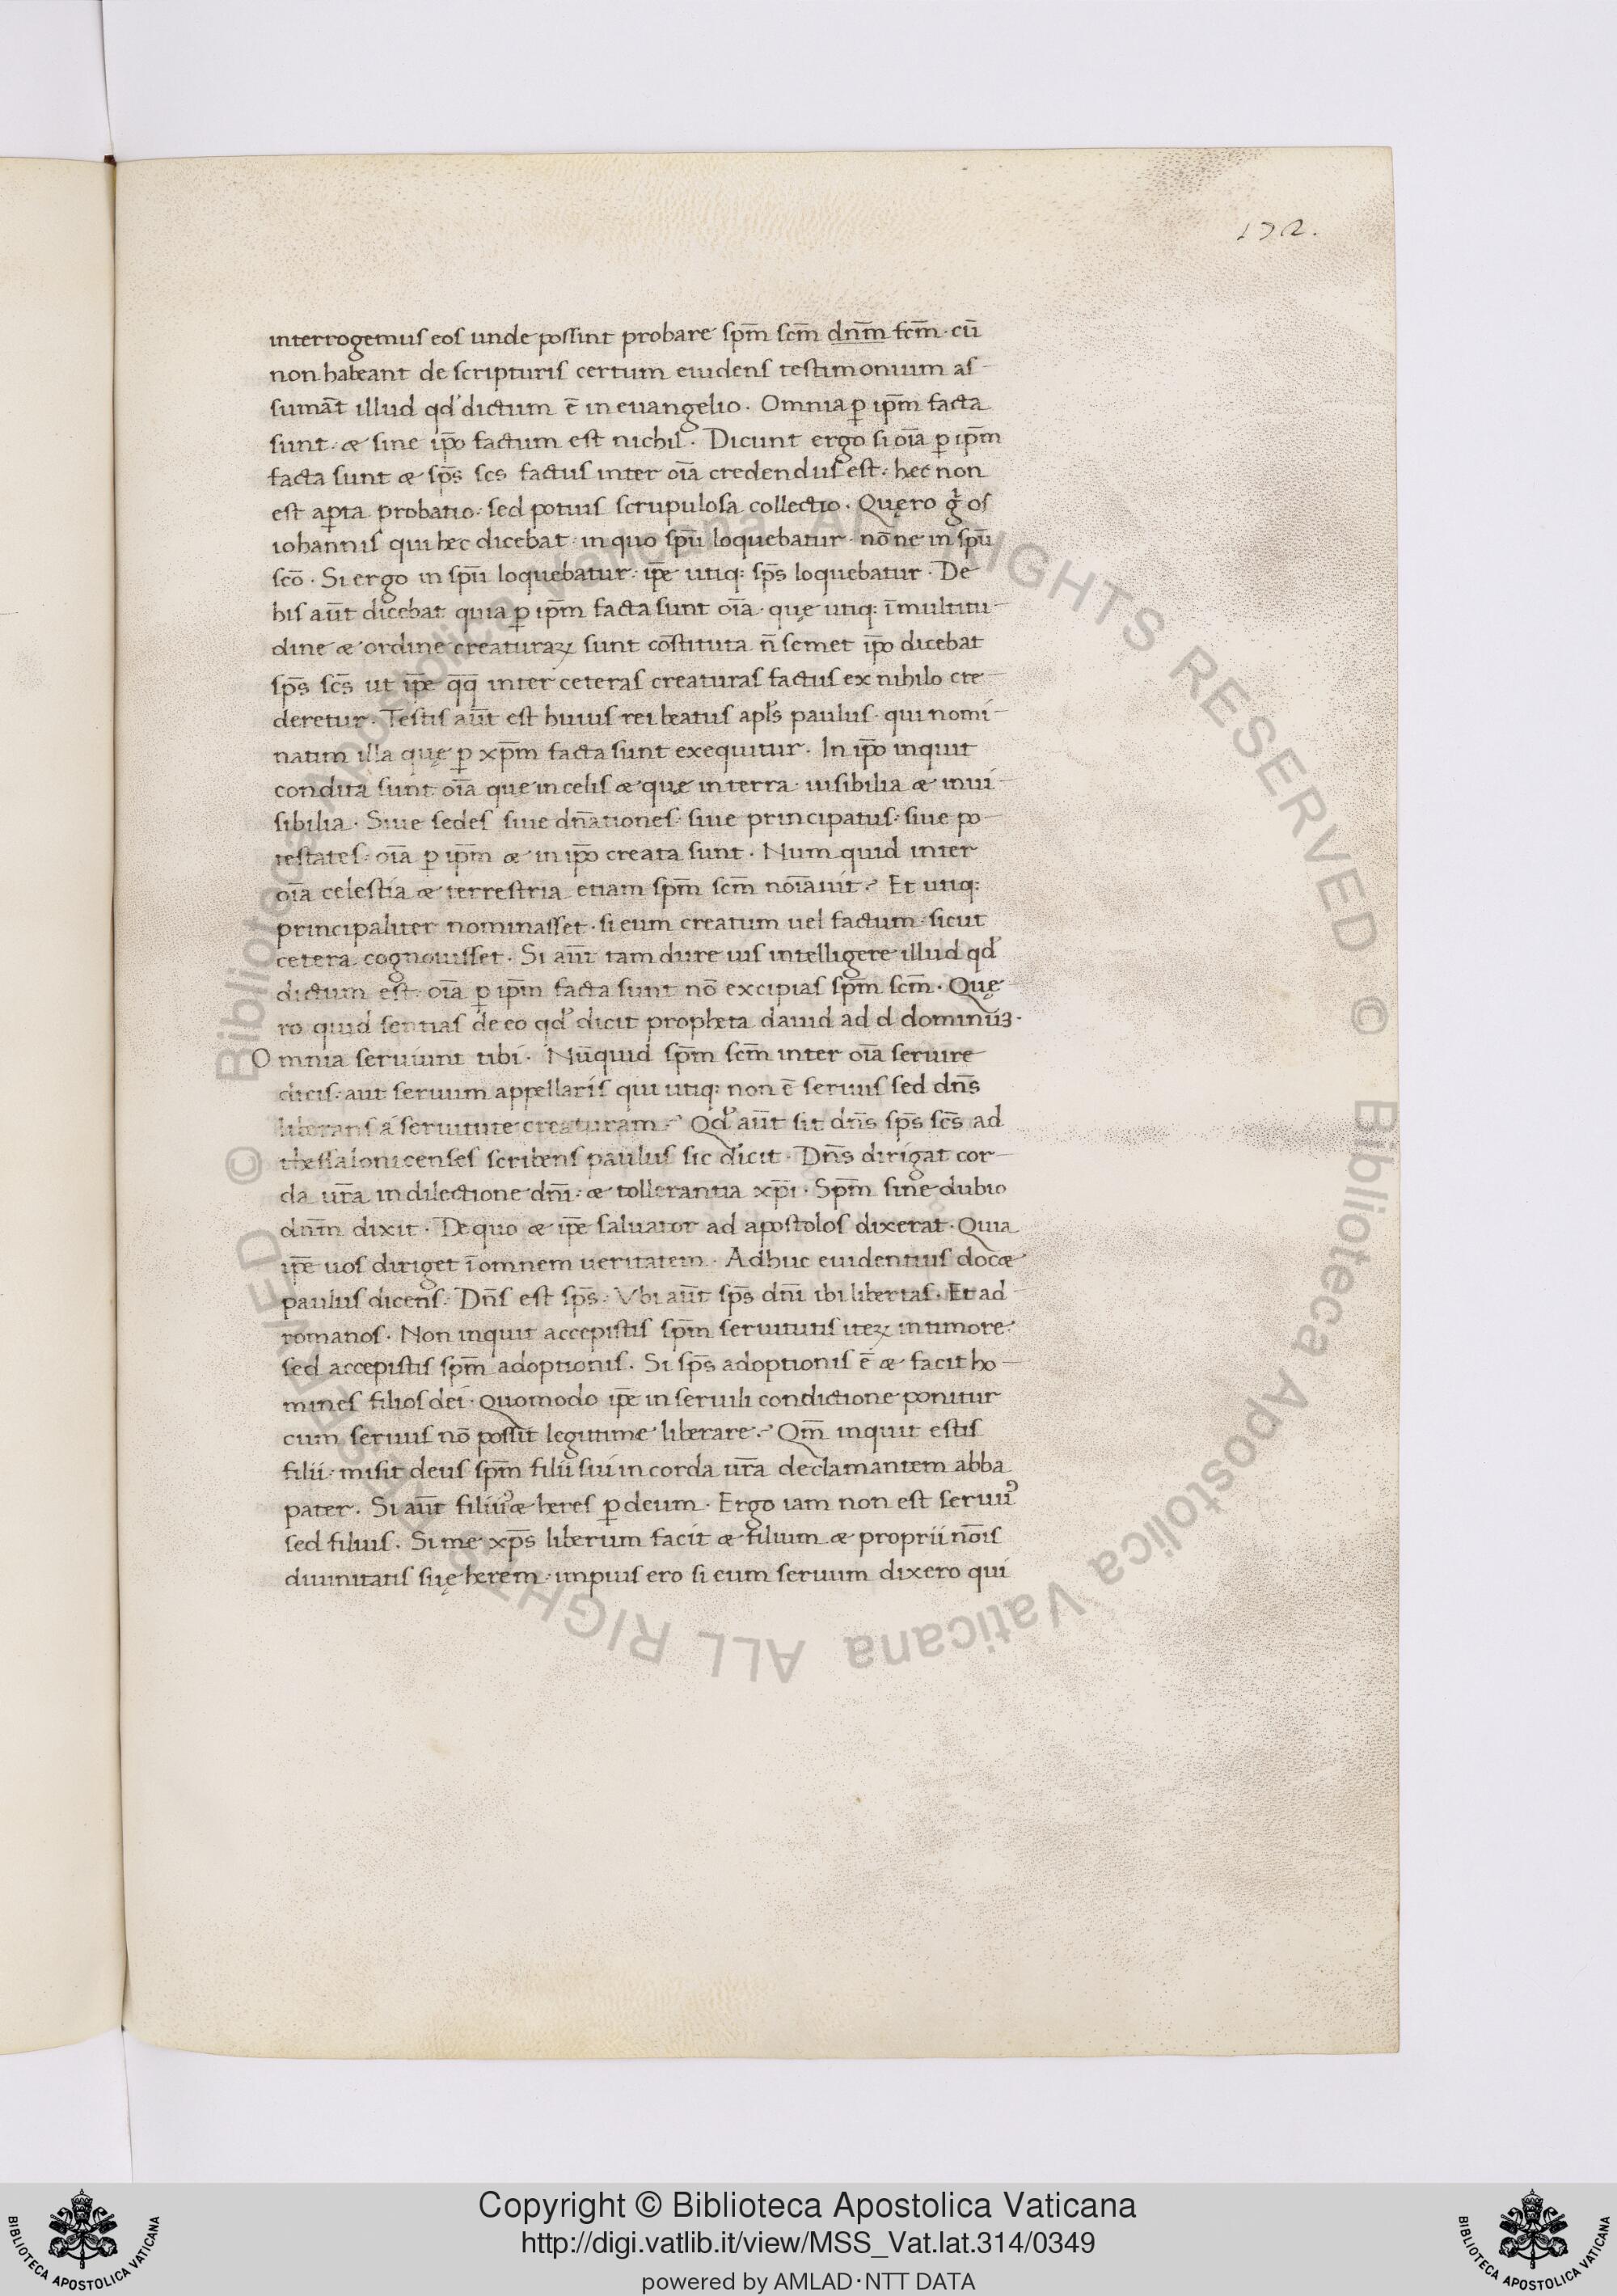 172.
interrogemus eos unde possint probare sp̄m sc̄m dn̄m fc̄m · cū
non habeant de scripturis certum euidens testimonium as-
sumāt illud qd' dictum ē in euangelio. Omnia ꝑ ip̄m facta
sunt: æ sine ip̄o factum est nichil. Dicunt ergo si oīa ꝑ ip̄m
facta sunt æ sp̄s scs factus inter oīa credendus est: hec non
est aꝑta probatio: sed potius scrupulosa collectio. Quęro g̊ os
iohannis qui hec dicebat · in quo spū loquebatur · nōne in spū
scō. Si ergo in spū loquebatur: ip̄e utiq: sp̄s loquebatur. De
his aūt dicebat quia ꝑ ip̄m facta sunt oīa · quę utiq: ī multitu-
dine æ ordine creaturaꝝ sunt cōstituta n̄ semet ip̄o dicebat
sp̄s sc̄s ut ip̄e q̄q̄ inter ceteras creaturas factus ex nihilo cre-
deretur. Testis aūt est huius rei beatus apl's paulus · qui nomi-
natim illa quę ꝑ xp̄m facta sunt exequitur. In ip̄o inquit
condita sunt oīa quę in celis æ quę in terra · uisibilia æ inui-
sibilia. Siue sedes siue dn̄ationes: siue principatus: siue po-
testates: oīa ꝑ ip̄m æ in ip̄o creata sunt. Num quid inter
oīa celestia æ terrestria etiam sp̄m sc̄m noīauit? Et utiq:
principaliter nominasset · si eum creatum uel factum · sicut
cetera cognouisset. Si aūt tam dure uis intelligere illud qd'
dictum est: oīa ꝑ ip̄m facta sunt nō excipias sp̄m sc̄m. Quę-
ro quid sentias de eo qd' dicit propheta dauid ad d dominūȝ.
Omnia seruiunt tibi. Nūquid sp̄m sc̄m inter oīa seruire
dicis: aut seruum appellaris qui utiq: non ē seruus sed dn̄s
liberans á seruitute creaturam? Qd' aūt sit dn̄s sp̄s sc̄s ad
thessalonicenses scribens paulus sic dicit. Dn̄s dirigat cor-
da ur̄a in dilectione dn̄i: æ tollerantia xp̄i. Sp̄m sine dubio
dn̄m dixit. De quo æ ip̄e saluator ad apostolos dixerat. Quia
ip̄e uos diriget ī omnem ueritatem. Adhuc euidentius docæ
paulus dicens: Dn̄s est sp̄s: Vbi aūt sp̄s dn̄i ibi libertas. Et ad
romanos. Non inquit accepistis sp̄m seruitutis iteꝝ in timore:
sed accepistis sp̄m adoptionis. Si sp̄s adoptionis ē æ facit ho-
mines filios dei. Quomodo ip̄e in seruili condictione ponitur
cum seruus nō possit legitime liberare? Qm̄ inquit estis
filii: misit deus sp̄m filii sui in corda ur̄a declamantem abba
pater. Si aūt filiuꝰ æ heres ꝑ deum. Ergo iam non est seruuꝰ
sed filius. Si me xp̄s liberum facit æ filium æ proprii nōis
diuinitatis suę herem: impius ero si eum seruum dixero qui
© Biblioteca Apostolica Vaticana ALL RIGHTS RESERVED
© Biblioteca Apostolica Vaticana ALL RIGHTS RESERVED
Copyright © Biblioteca Apostolica Vaticana
http://digi.vatlib.it/view/MSS_Vat.lat.314/0349
powered by AMLAD·NTT DATA
BIBLIOTECA APOSTOLICA VATICANA
BIBLIOTECA APOSTOLICA VATICANA